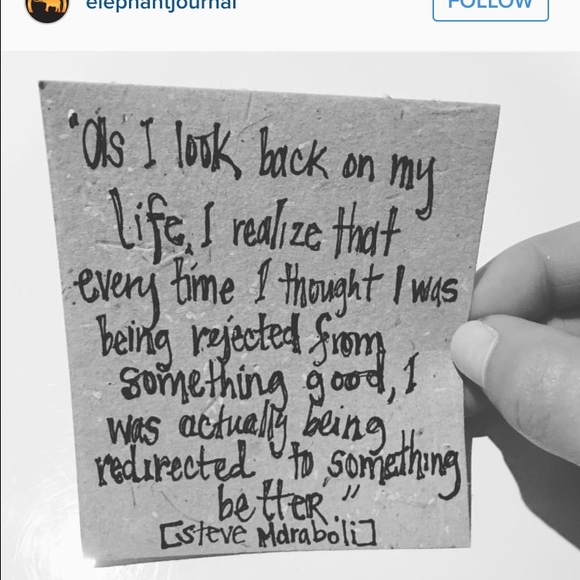 elephantjournal
FOLLOW
"As I look back on my
life, I realize that
every time I thought I was
being rejected from
something good, I
was actually being
redirected to something
better."
[Steve Maraboli]